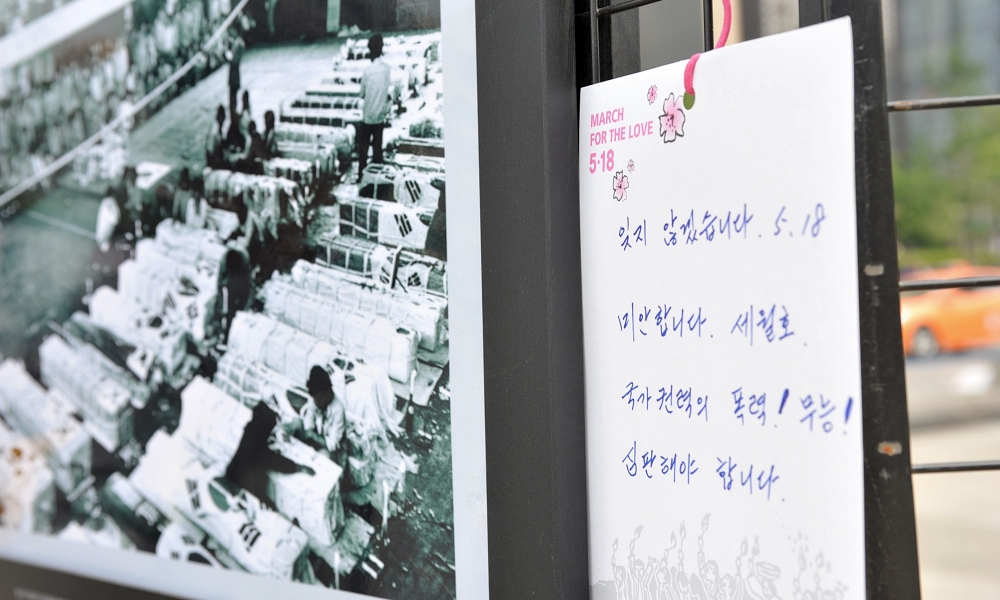 MARCH
FOR THE LOVE
5·18
잊지 않겠습니다. 5.18
미안합니다. 세월호.
국가권력의 폭력! 무능!
심판해야 합니다.